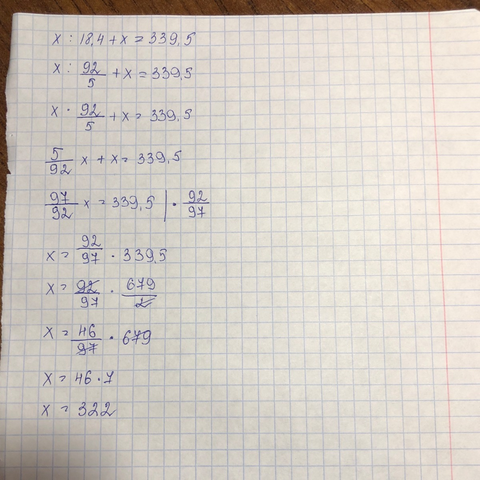 x : 18,4 + x = 339,5
x : 92/5 + x = 339,5
x · 92/5 + x = 339,5
5/92 x + x = 339,5
97/92 x = 339,5 | · 92/97
x = 92/97 · 339,5
x = 92/97 · 679/2
x = 46/97 · 679
x = 46 · 7
x = 322